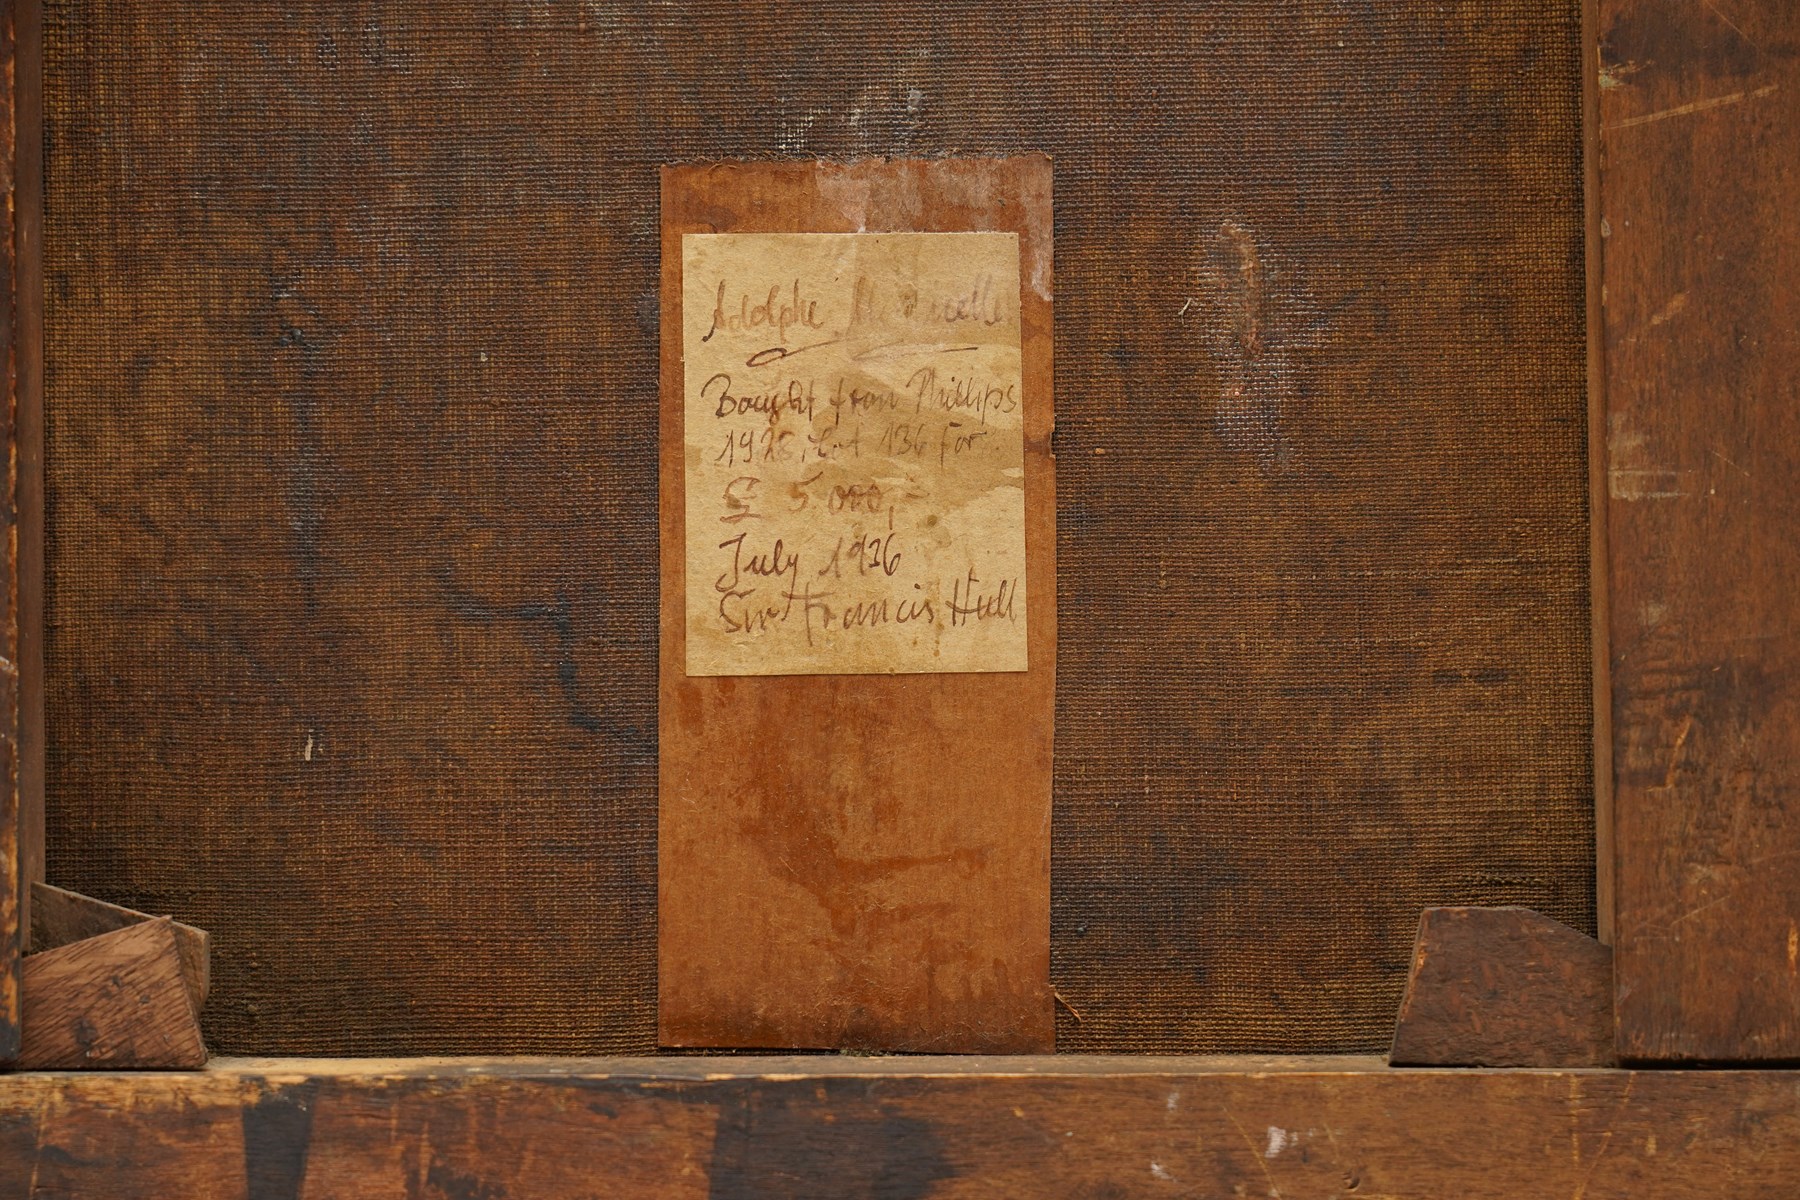 Adolphe
Bought from Phillips
1928, Lot 136 for
£ 5.000,-
July 1936
Sir Francis Hull